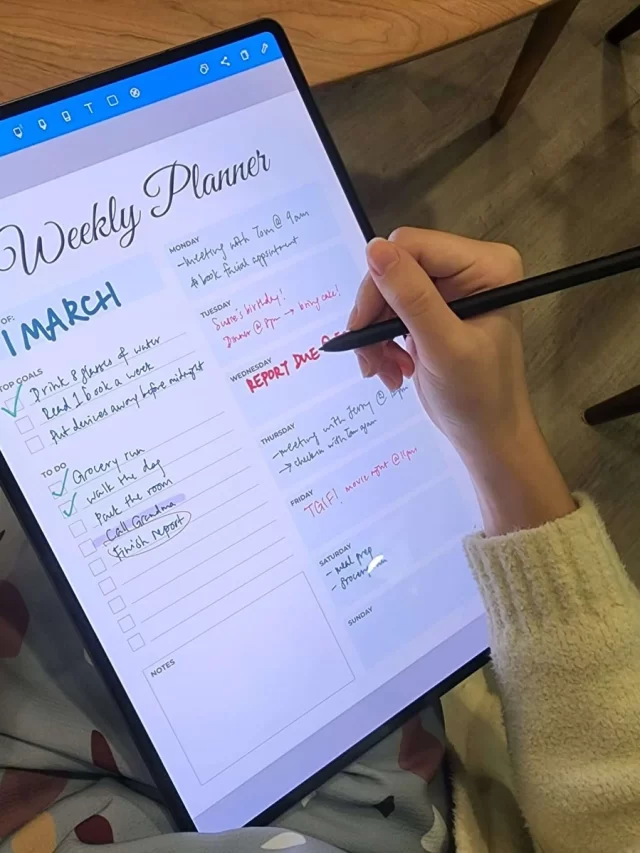 Weekly Planner
OF:
1 MARCH
TOP GOALS
Drink 8 glasses of water
Read 1 book a week
Put devices away before midnight
TO DO
Grocery run
Walk the dog
Pack the room
Call Grandma
Finish report
NOTES
MONDAY
- meeting with Tom @ 9am
book facial appointment
TUESDAY
Susie's birthday!
Dinner @ 8pm → bring cake!
WEDNESDAY
REPORT DUE
THURSDAY
- meeting with Jerry @
→ check in with Tom again
FRIDAY
TGIF! movie night @
SATURDAY
- meal prep
-
SUNDAY